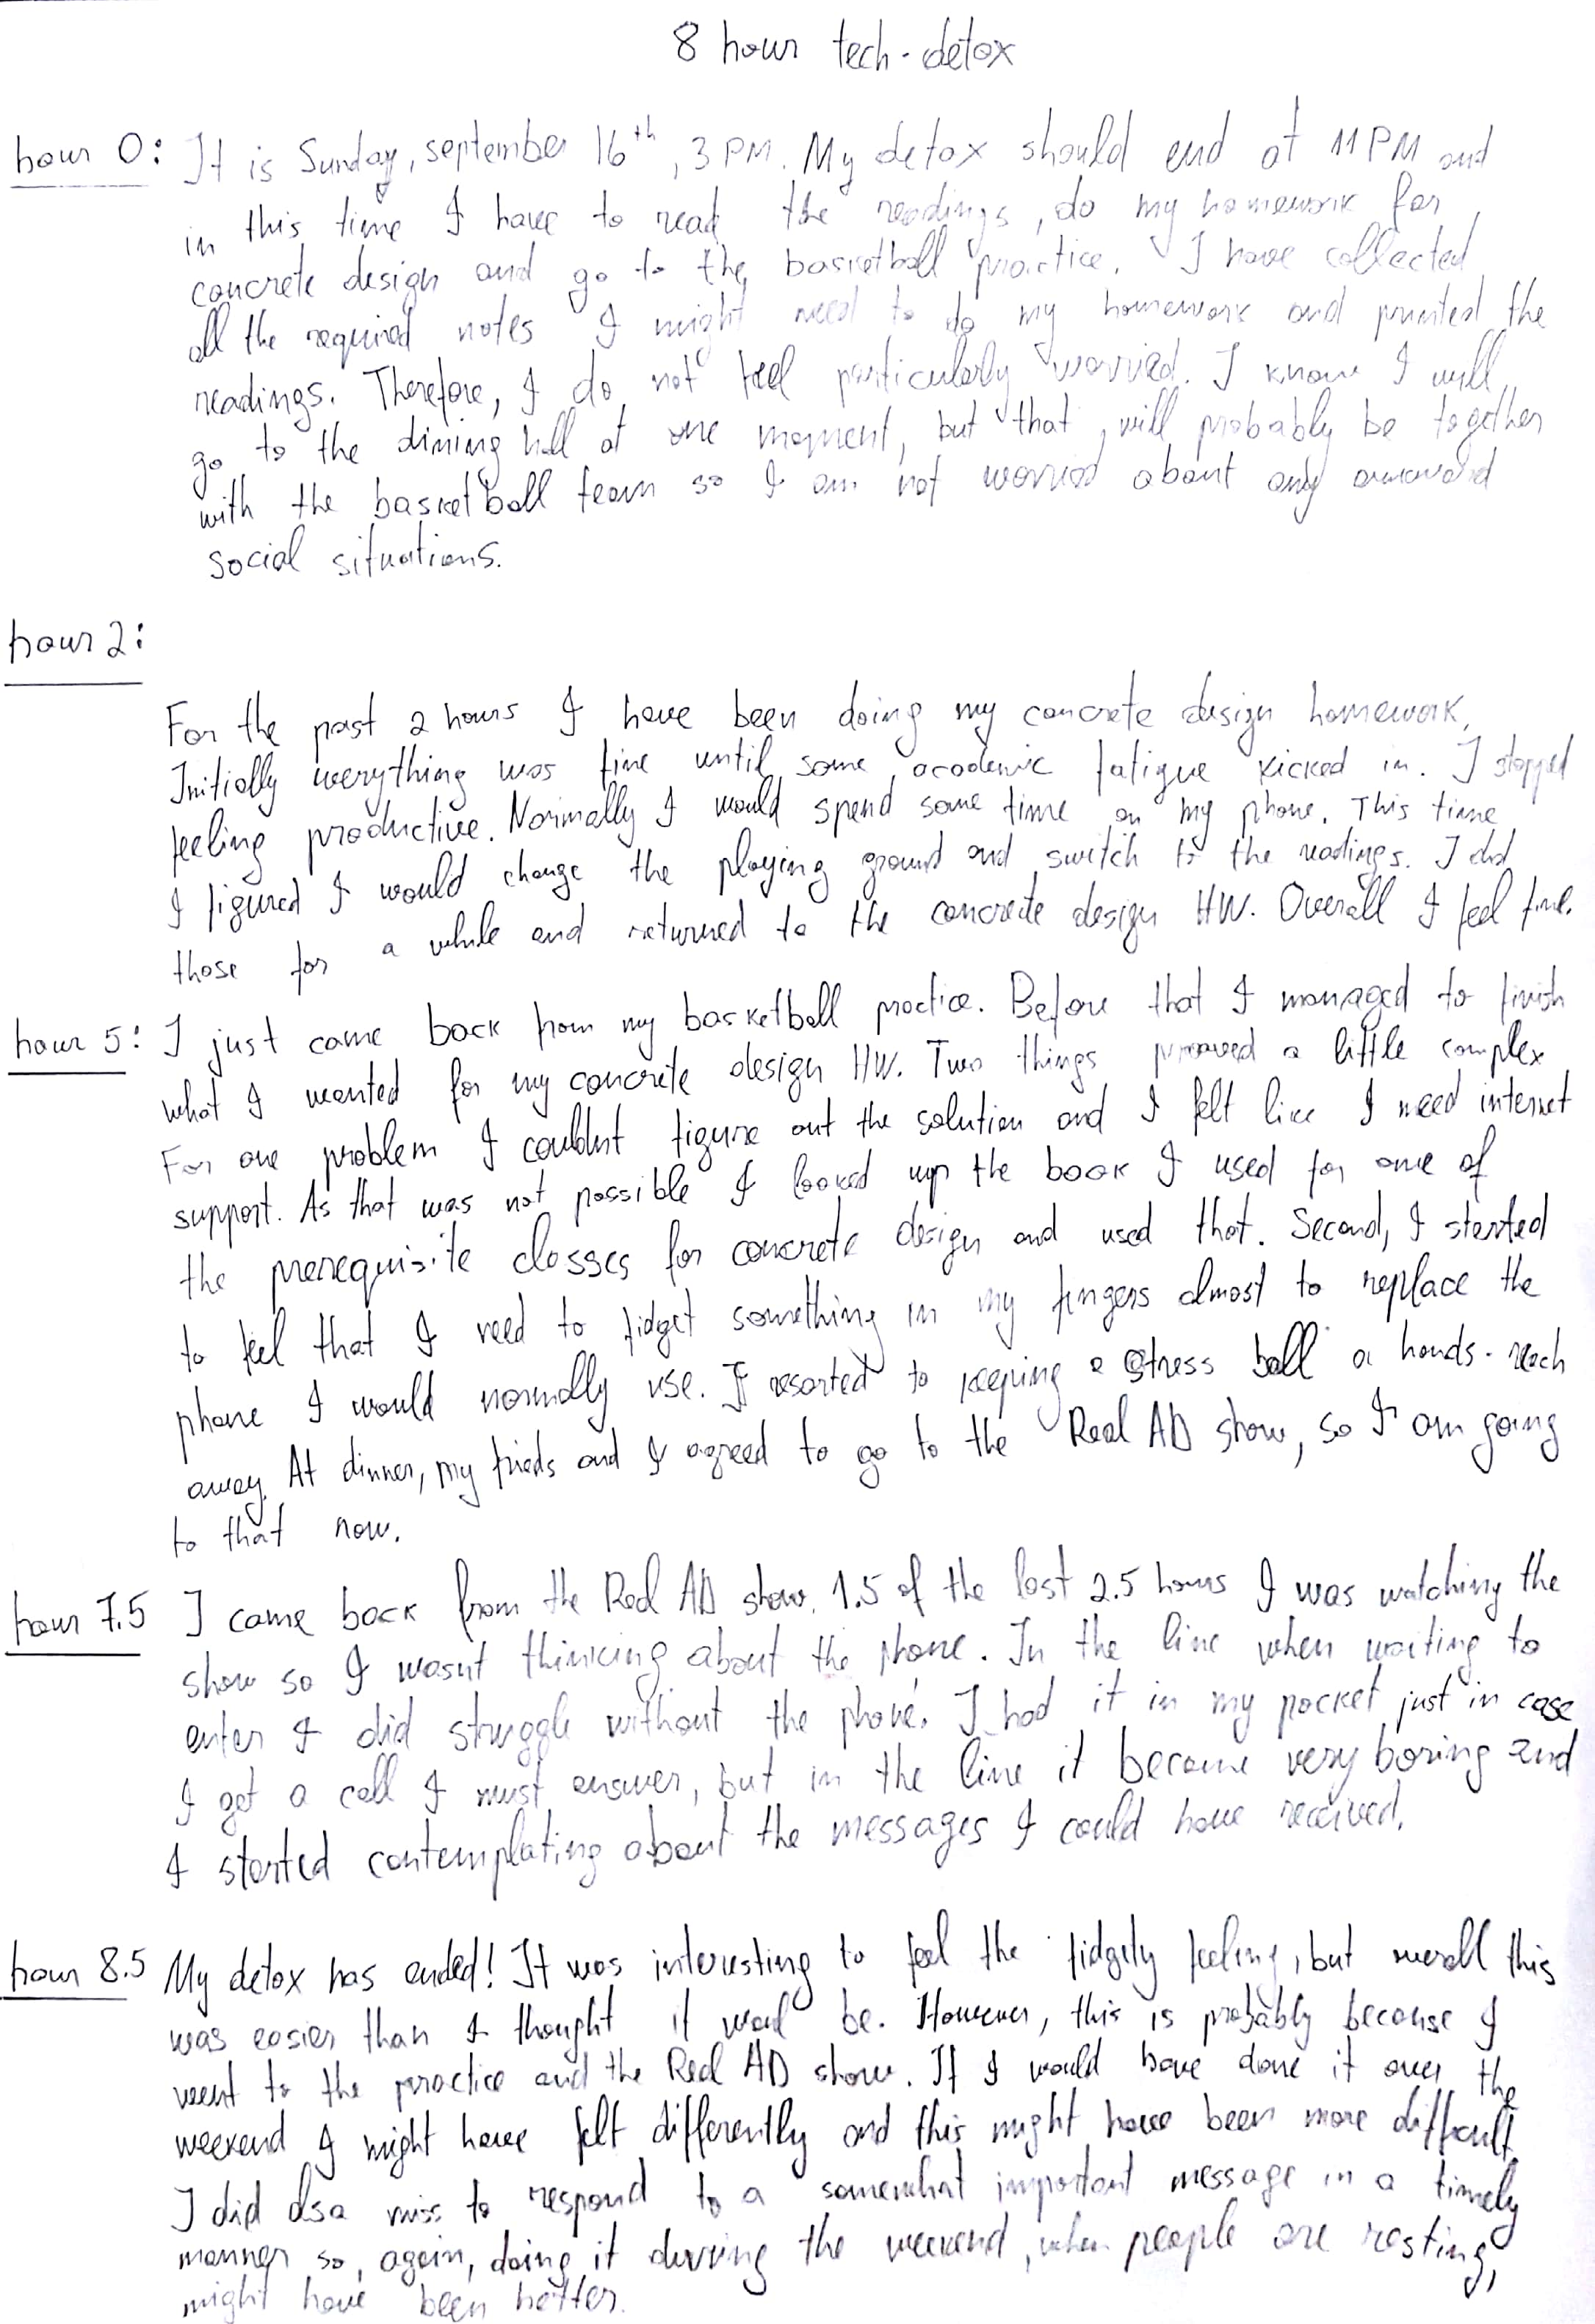 8 hour tech-detox
hour 0: It is Sunday, september 16th, 3 PM. My detox should end at 11 PM and
in this time I have to read the readings, do my homework for
concrete design and go to the basketball practice. I have collected
all the required notes I might need to do my homework and printed the
readings. Therefore, I do not feel particularly worried. I know I will
go to the dining hall at one moment, but that will probably be together
with the basketball team so I am not worried about any awkward
social situations.
hour 2:
For the past 2 hours I have been doing my concrete design homework.
Initially everything was fine until some academic fatigue kicked in. I stopped
feeling productive. Normally I would spend some time on my phone. This time
I figured I would change the playing ground and switch to the readings. I did
those for a while and returned to the concrete design HW. Overall I feel fine.
hour 5: I just came back from my basketball practice. Before that I managed to finish
what I wanted for my concrete design HW. Two things proved a little complex
For one problem I couldnt figure out the solution and I felt like I need internet
support. As that was not possible I looked up the book I used for one of
the prerequisite classes for concrete design and used that. Second, I started
to feel that I need to fidget something in my fingers almost to replace the
phone I would normally use. I resorted to keeping a stress ball a hands-reach
away. At dinner, my frieds and I agreed to go to the Real AD show, so I am going
to that now.
hour 7.5 I came back from the Real AD show. 1.5 of the last 2.5 hours I was watching the
show so I wasnt thinking about the phone. In the line when waiting to
enter I did struggle without the phone. I had it in my pocket just in case
I get a call I must answer, but in the line it became very boring and
I started contemplating about the messages I could have received.
hour 8.5 My detox has ended! It was interesting to feel the fidgity feeling, but overall this
was easier than I thought it woul be. However, this is probably because I
went to the practice and the Real AD show. If I would have done it over the
weekend I might have felt differently and this might have been more difficult.
I did also miss to respond to a somewhat important message in a timely
manner so, again, doing it durring the weekend, when people are resting,
might have been better.